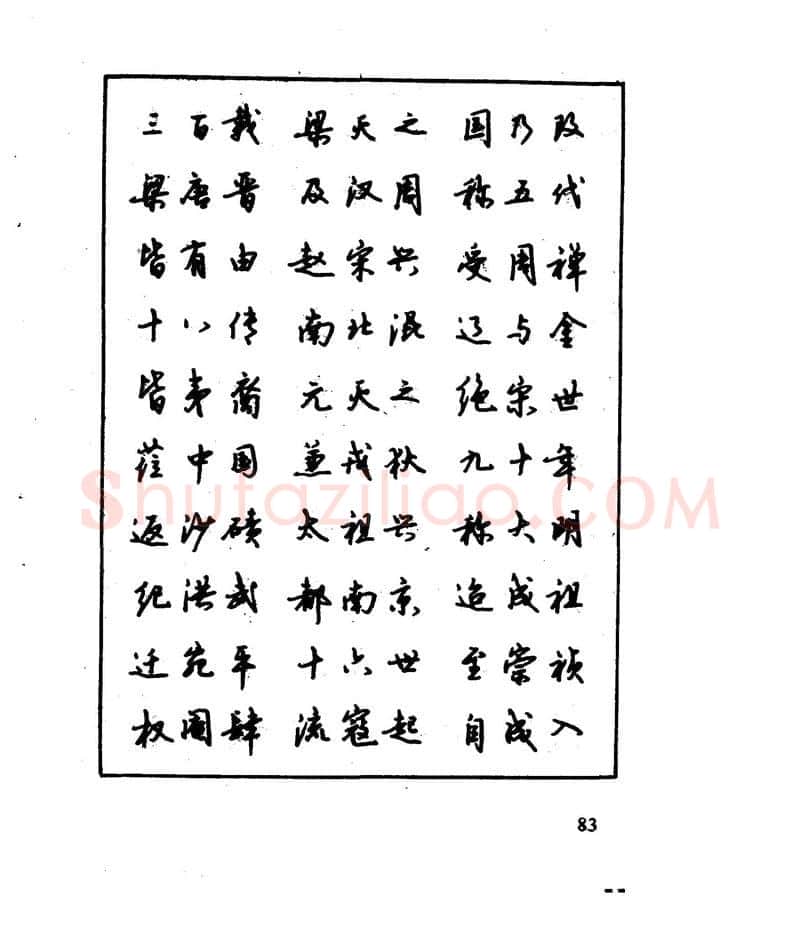 三百载 梁灭之 国乃改
梁唐晋 及汉周 称五代
皆有由 赵宋兴 受周禅
十八传 南北混 辽与金
皆夷裔 元灭之 绝宋世
莅中国 兼戎狄 九十年
返沙碛 太祖兴 称大明
纪洪武 都南京 迨成祖
迁宛平 十六世 至崇祯
权阉肆 流寇起 自成入
Shufaziliao.COM
83